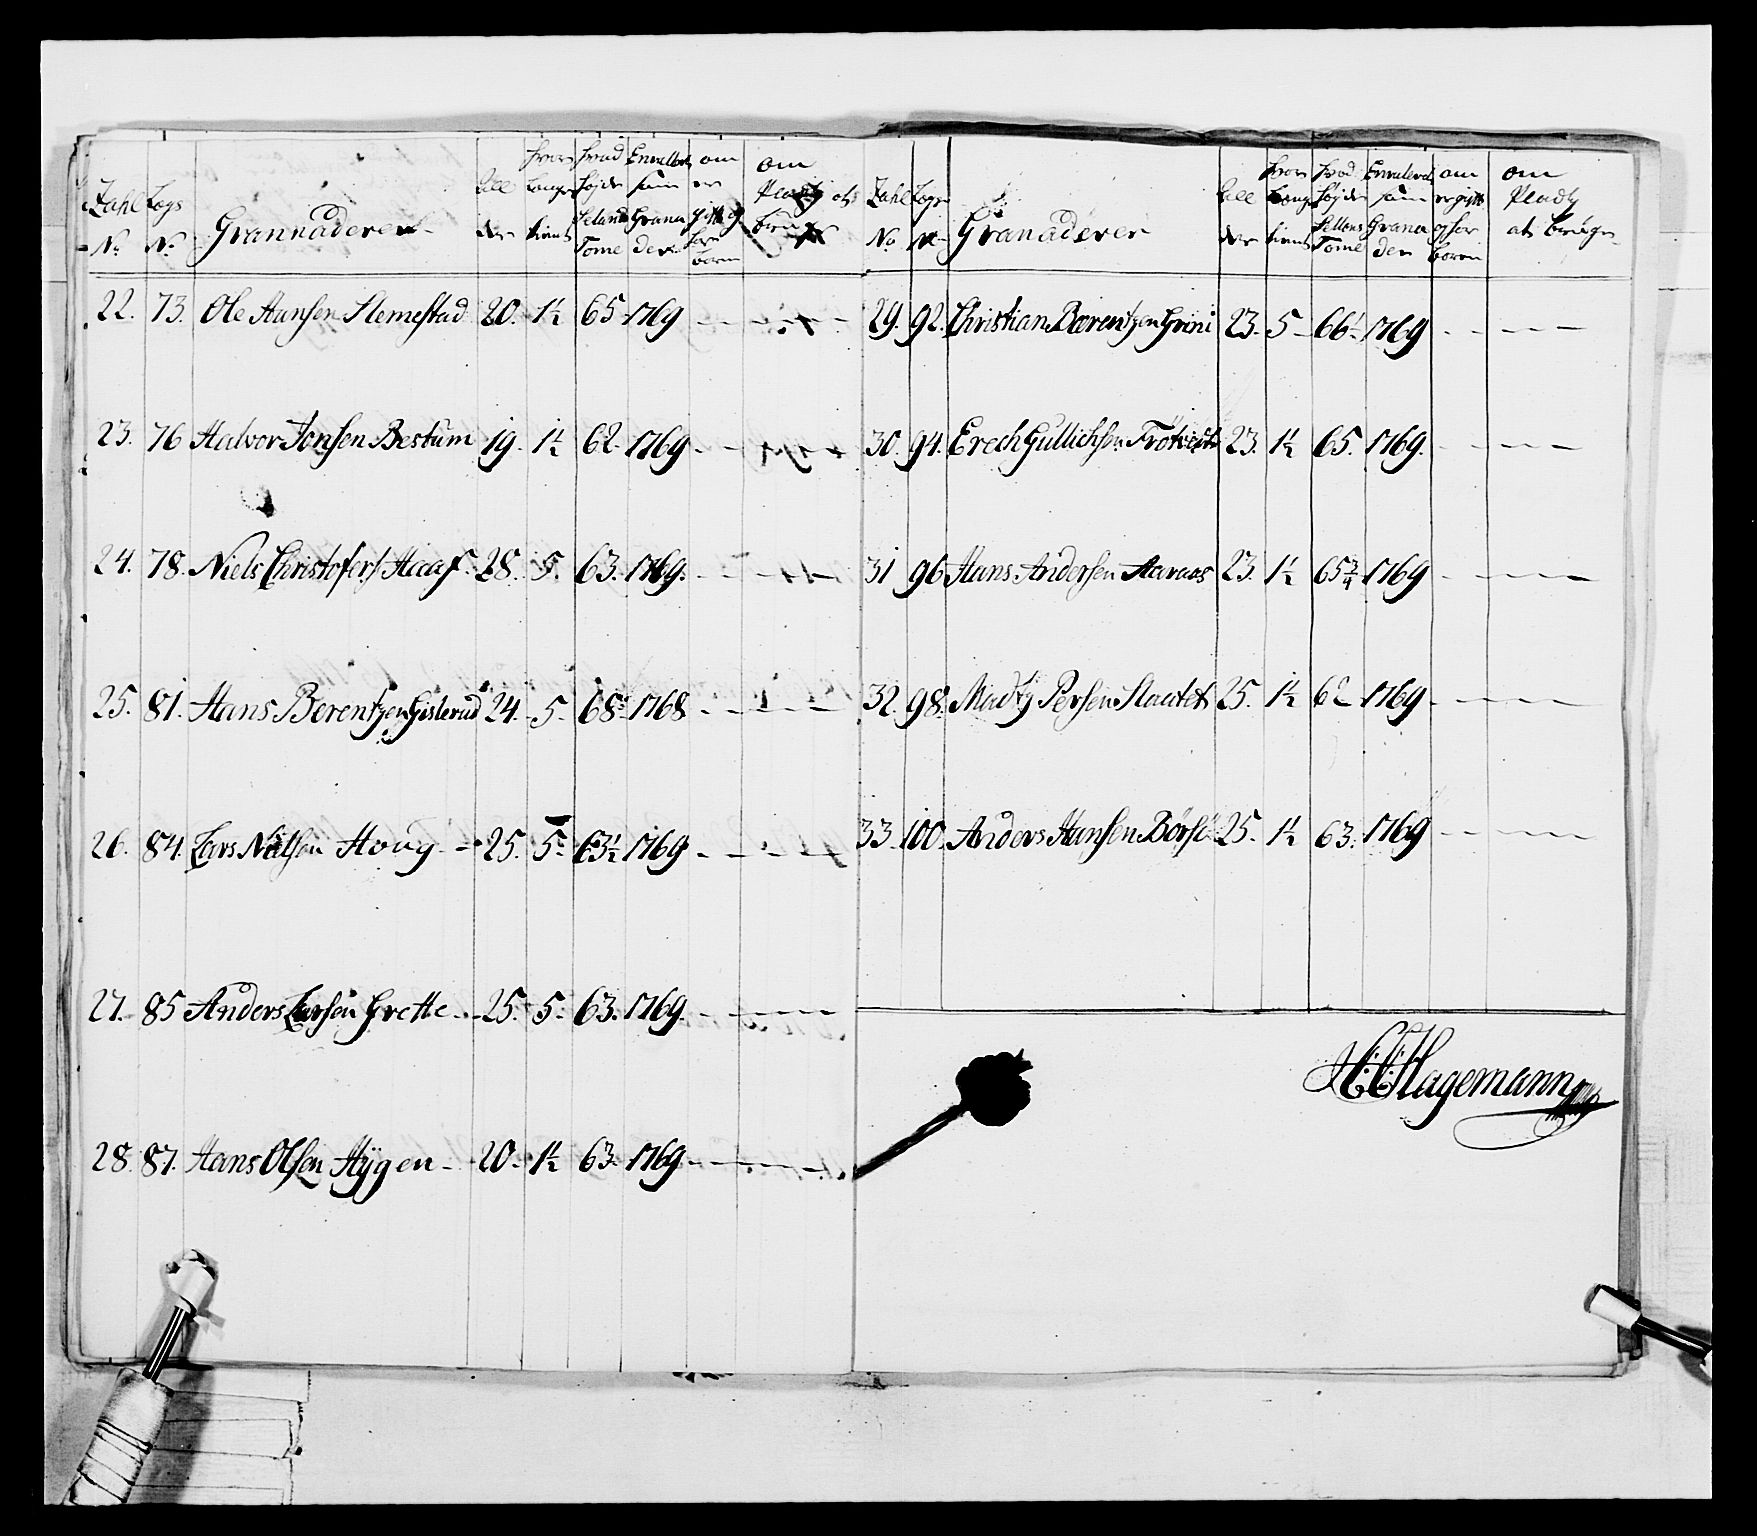 Zahl Logs Grannaderer Alder hvor Længe tient hvad Højde Enrullert som Granader om er gift og har børn om Pladtz at
No No
22. 73. Ole Hansen Slemestad 20. 1½ 65 1769 - - - -
23. 76 Halvor Jonsen Bestum 19. 1½ 62 1769 - - - -
24. 78. Niels Christofers Haaf 28. 5. 63. 1769. - - - -
25. 81. Hans Berentzen Gislerud 24. 5. 68 1768 - - - -
26. 84. Lars Nilsen Houg - 25. 5- 63½ 1769 - - - -
27. 85 Anders Larsen Grette - 25. 5- 63. 1769. - - - -
28. 87. Hans Olsen Hÿgen - 20- 1½ 63- 1769 - - - -
Zahl Logs Granaderer Alder hvor Længe tient hvad Højde Enrulert som Granader om er gift og har børn om Pladtz at bruge
No No
29. 92. Christian Bærentzen Grini 23. 5- 66½ 1769 - - - -
30. 94. Erech Gullichsen 23. 1½ 65. 1769. - - - -
31 96 Hans Andersen Aaraas 23. 1½ 65¾ 1769 - - - -
32. 98. Madtz Persen Slaatet 25. 1½ 62- 1769 - - - -
33. 100. Anders Hansen 25. 1½ 63. 1769 - - - -
Hagemann